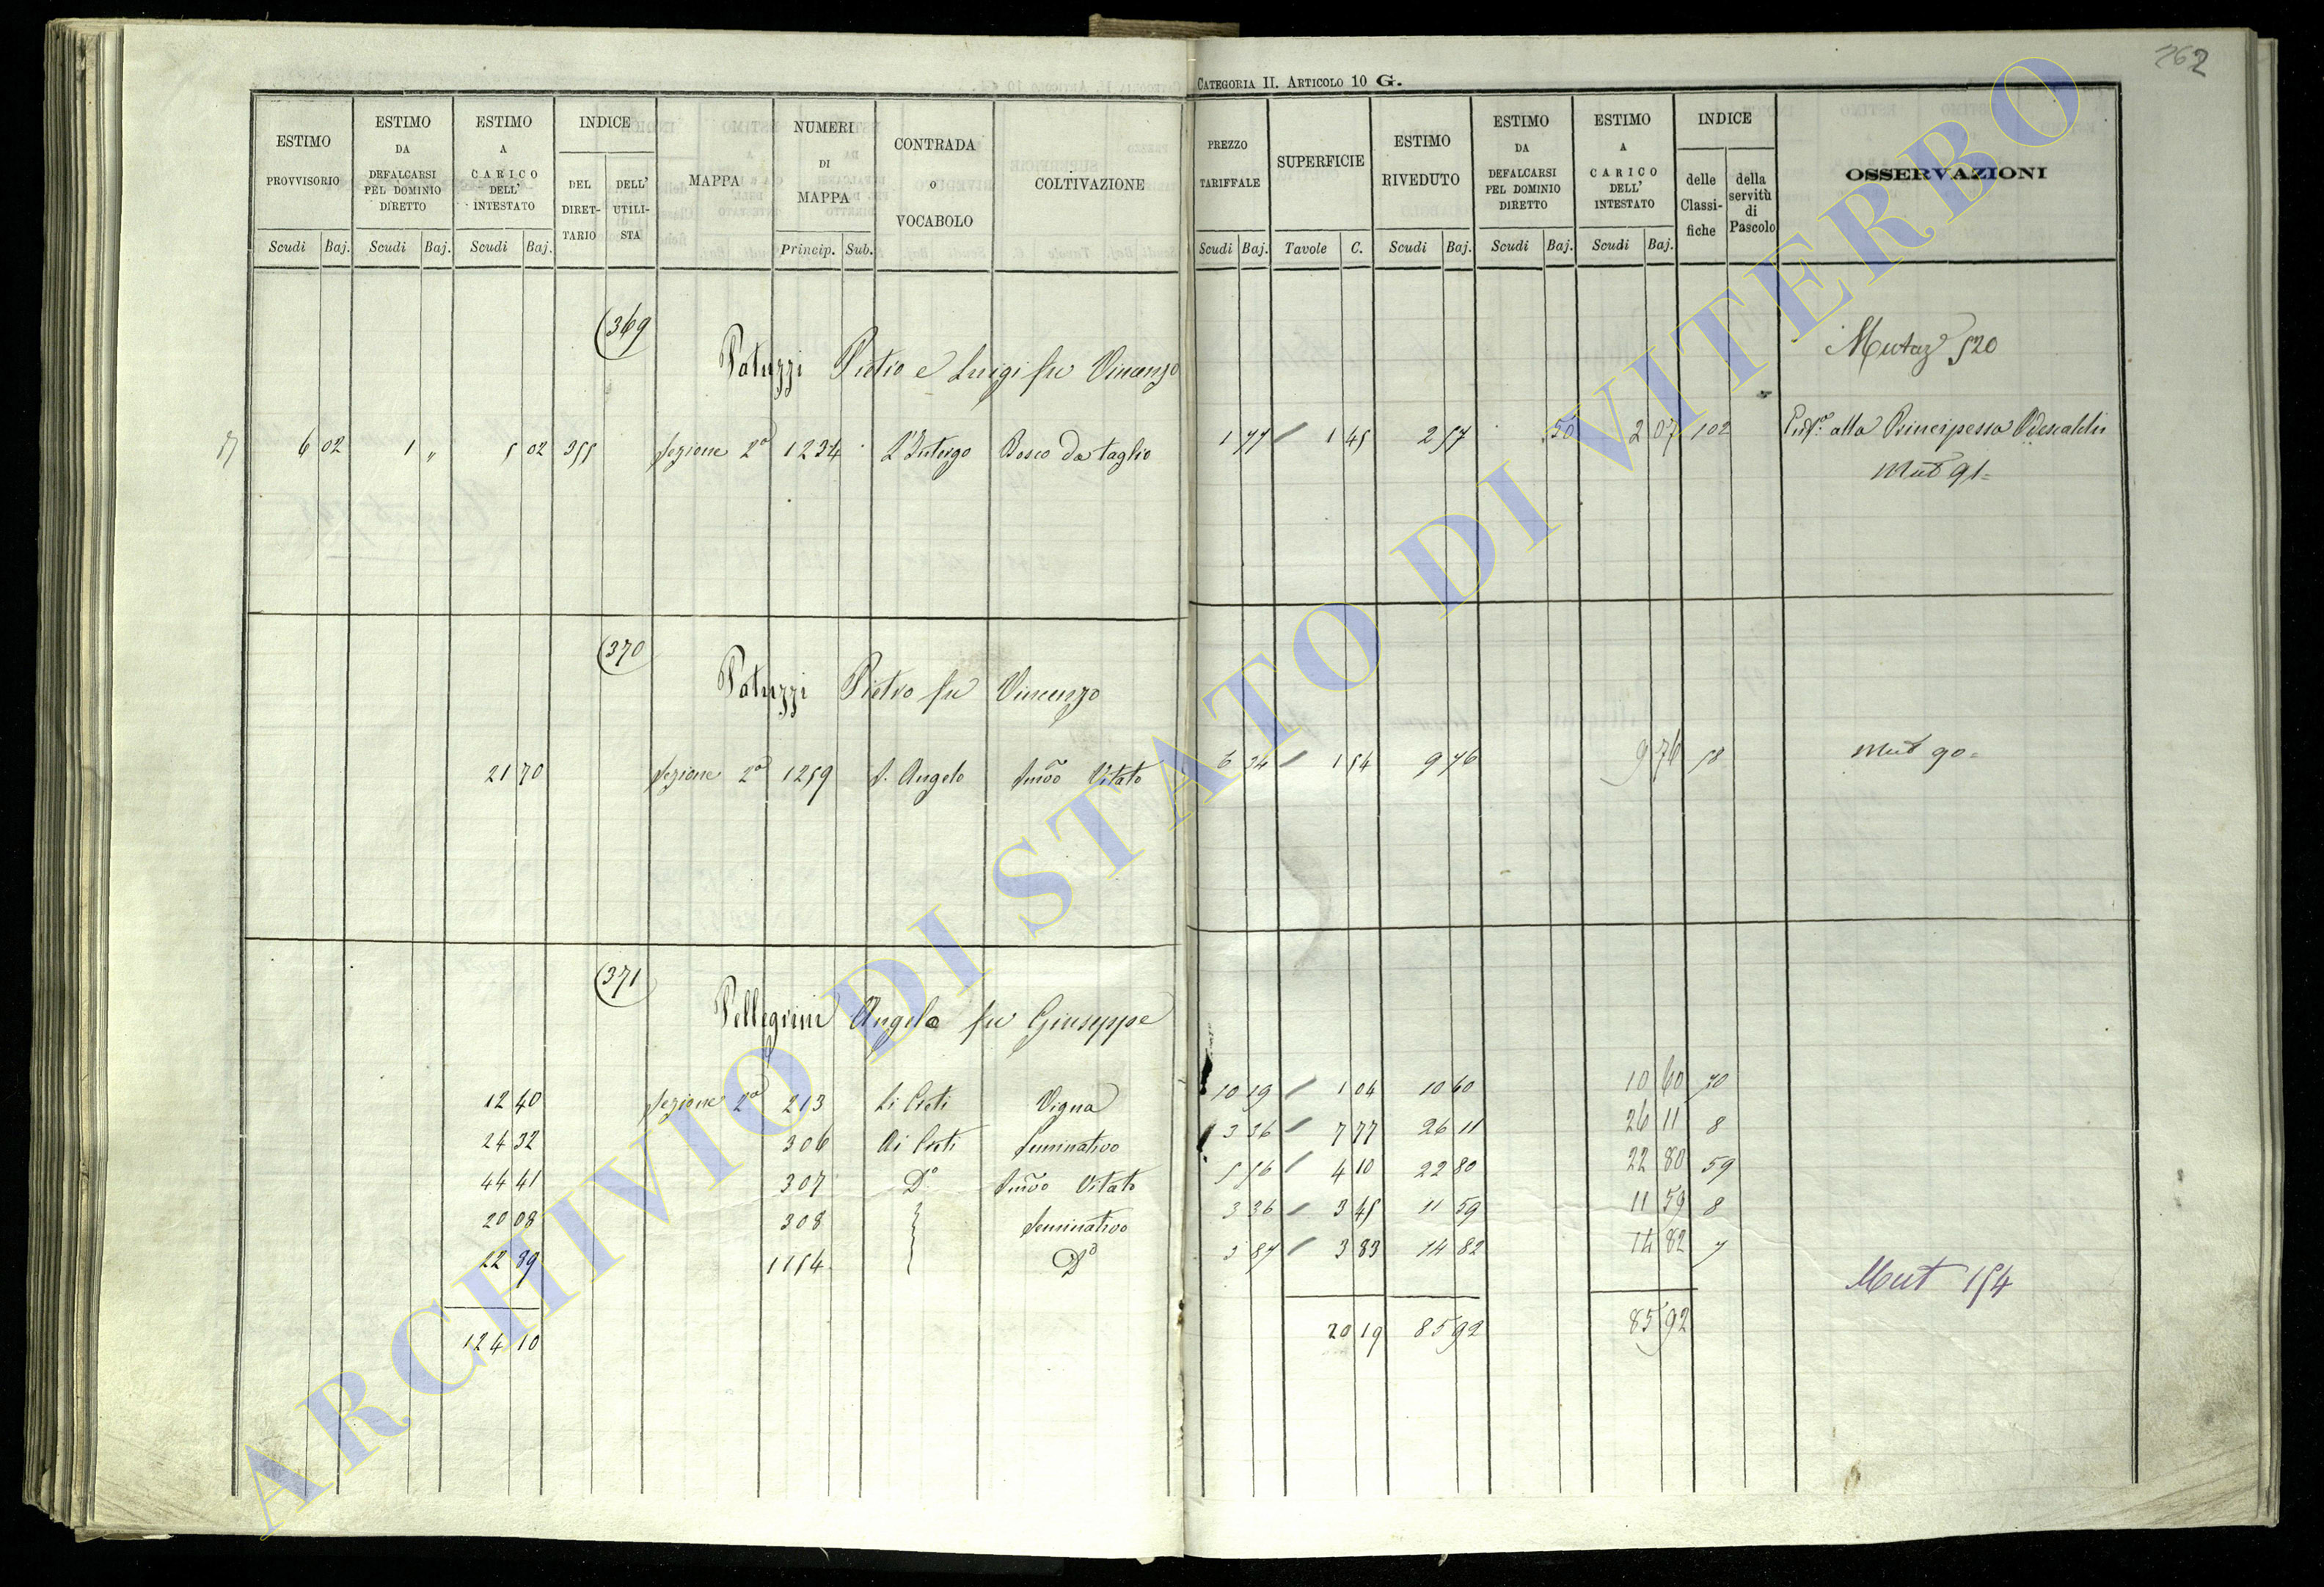 262
CATEGORIA II. ARTICOLO 10 G.
ESTIMO PROVVISORIO
ESTIMO DA DEFALCARSI PEL DOMINIO DIRETTO
ESTIMO A CARICO DELL' INTESTATO
INDICE
DEL DIRET-TARIO
DELL' UTILI-STA
MAPPA
NUMERI DI MAPPA
CONTRADA O VOCABOLO
COLTIVAZIONE
PREZZO TARIFFALE
SUPERFICIE
ESTIMO RIVEDUTO
ESTIMO DA DEFALCARSI PEL DOMINIO DIRETTO
ESTIMO A CARICO DELL' INTESTATO
INDICE
delle Classi-fiche
della servitù di Pascolo
OSSERVAZIONI
Scudi Baj. Scudi Baj. Scudi Baj. Princip. Sub. Scudi Baj. Tavole C. Scudi Baj. Scudi Baj. Scudi Baj.
369
Patuzzi Pietro e Luigi fu Vincenzo
Mutaz 520
6 02 1 „ 5 02 355 Sezione 2a 1234 Bosco da taglio 1 77 / 1 45 2 57 50 2 07 102 alla Principessa Odescalchi
Mut 91=
370
Patuzzi Pietro fu Vincenzo
21 70 Sezione 2a 1259 S. Angelo Smvo Vitato 6 34 / 1 54 9 76 9 76 58 Mut 90=
371
Pellegrini Angela fu Giuseppe
12 40 Sezione 2a 213 Li Creti Vigna 10 19 / 1 04 10 60 10 60 70
24 32 306 Ai Creti Seminativo 3 36 / 7 77 26 11 26 11 8
44 41 307 Do Smvo Vitato 5 56 / 4 10 22 80 22 80 59
20 08 308 Seminativo 3 36 / 3 45 11 59 11 59 8
22 89 1154 Do 3 87 / 3 83 14 82 14 82 7
Mut 154
124 10 20 19 85 92 85 92
ARCHIVIO DI STATO DI VITERBO